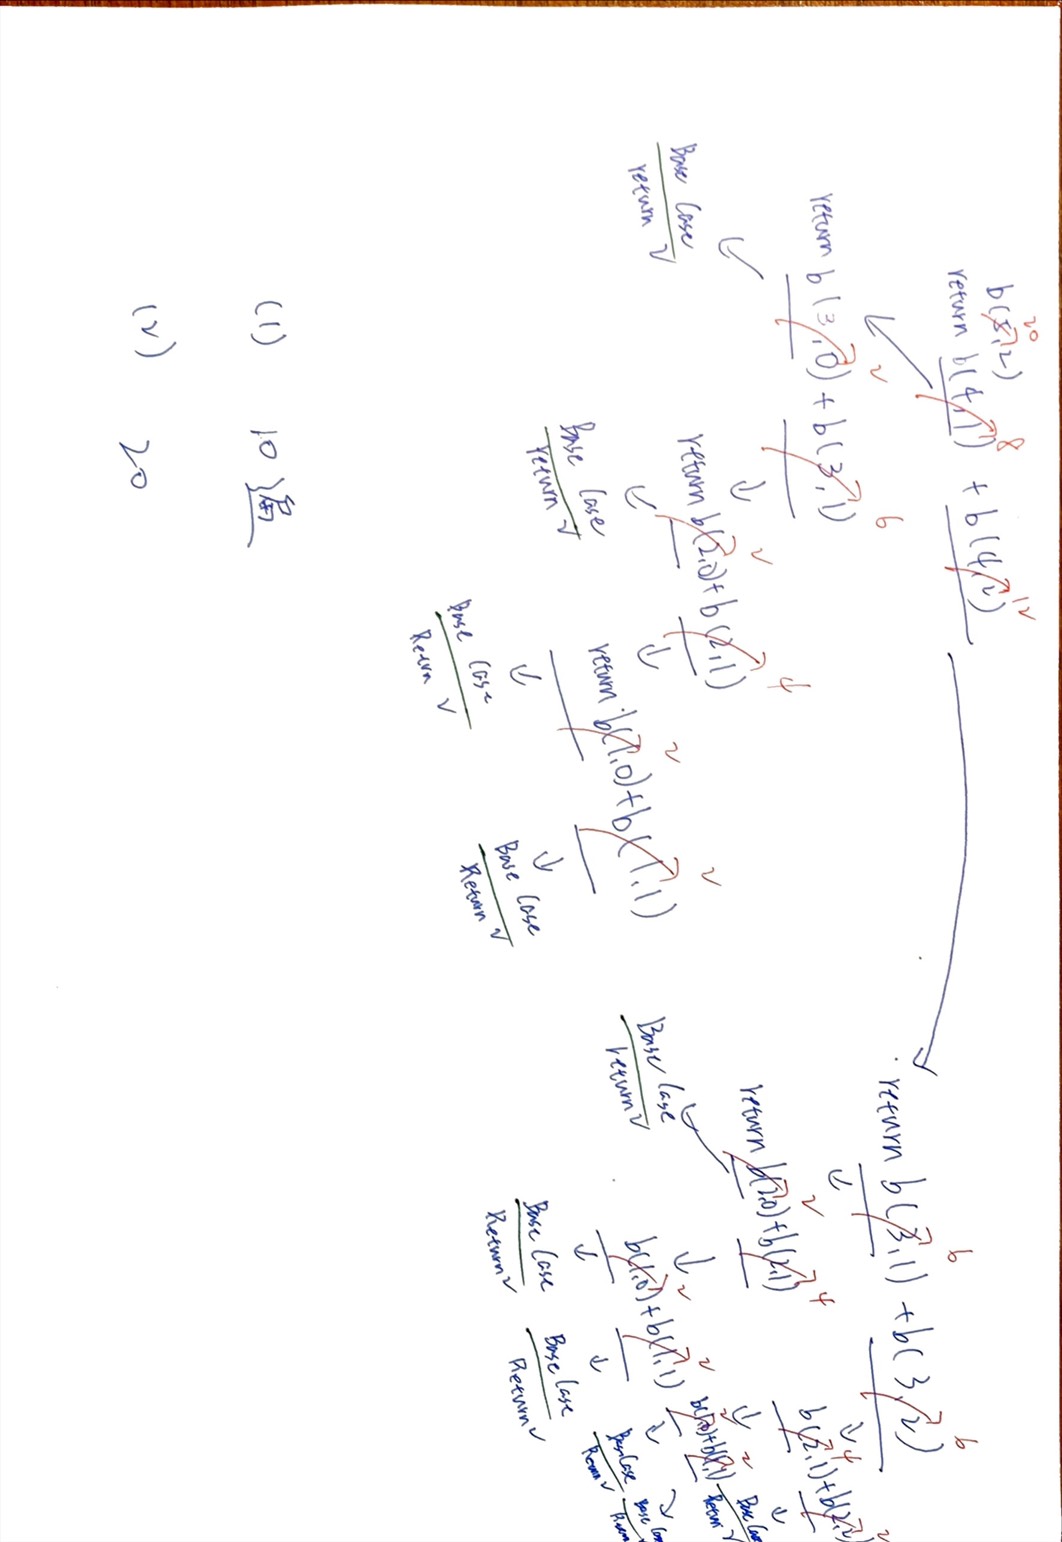 b(5,2) 20
return b(4,1) 8 + b(4,2) 12
return b(3,0) 2 + b(3,1) 6
Base Case
return 2
return b(2,0) 2 + b(2,1) 4
Base Case
return 2
return b(1,0) 2 + b(1,1) 2
Base Case
Return 2
Base Case
Return 2
return b(3,1) 6 + b(3,2) 6
return b(2,0) 2 + b(2,1) 4
Base Case
return 2
b(1,0) 2 + b(1,1) 2
Base Case
Return 2
Base Case
Return 2
b(2,1) 4 + b(2,2) 2
b(1,0) 2 + b(1,1) 2
Base Case
Return 2
Base Case
Return 2
Base Case
(1) 10
(2) 20